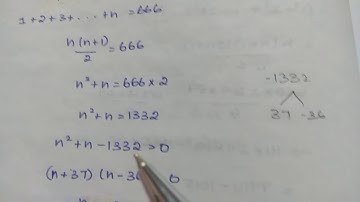 1+2+3+...+n =666
n(n+1)/2 =666
n²+n = 666×2
n²+n = 1332
n²+n-1332 =0
(n+37) (n-36 0
-1332
37 -36